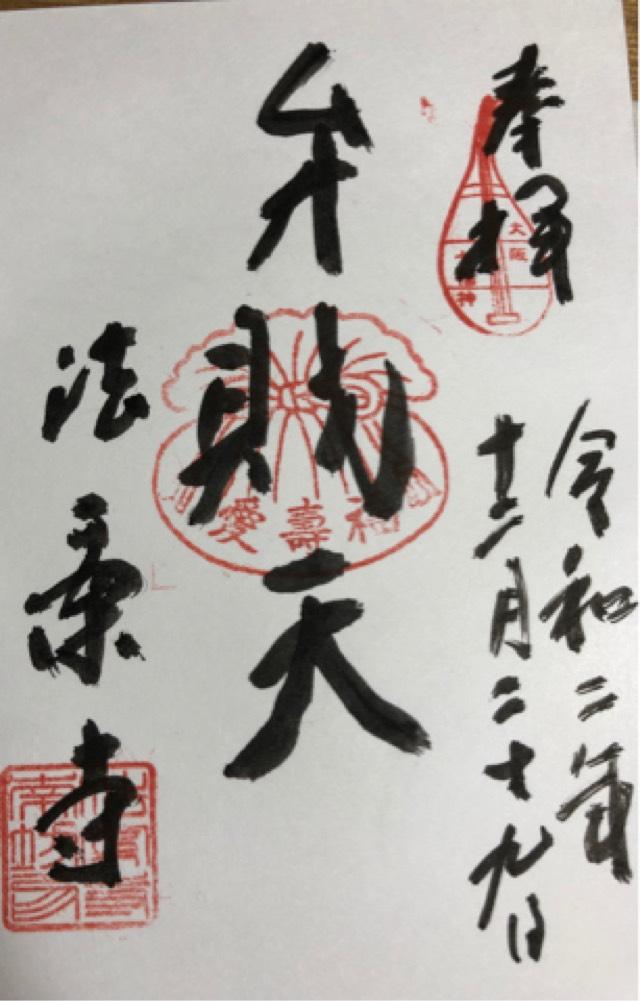 奉拝
大阪
七福神
令和二年
十二月二十九日
弁財天
福壽愛
法案寺